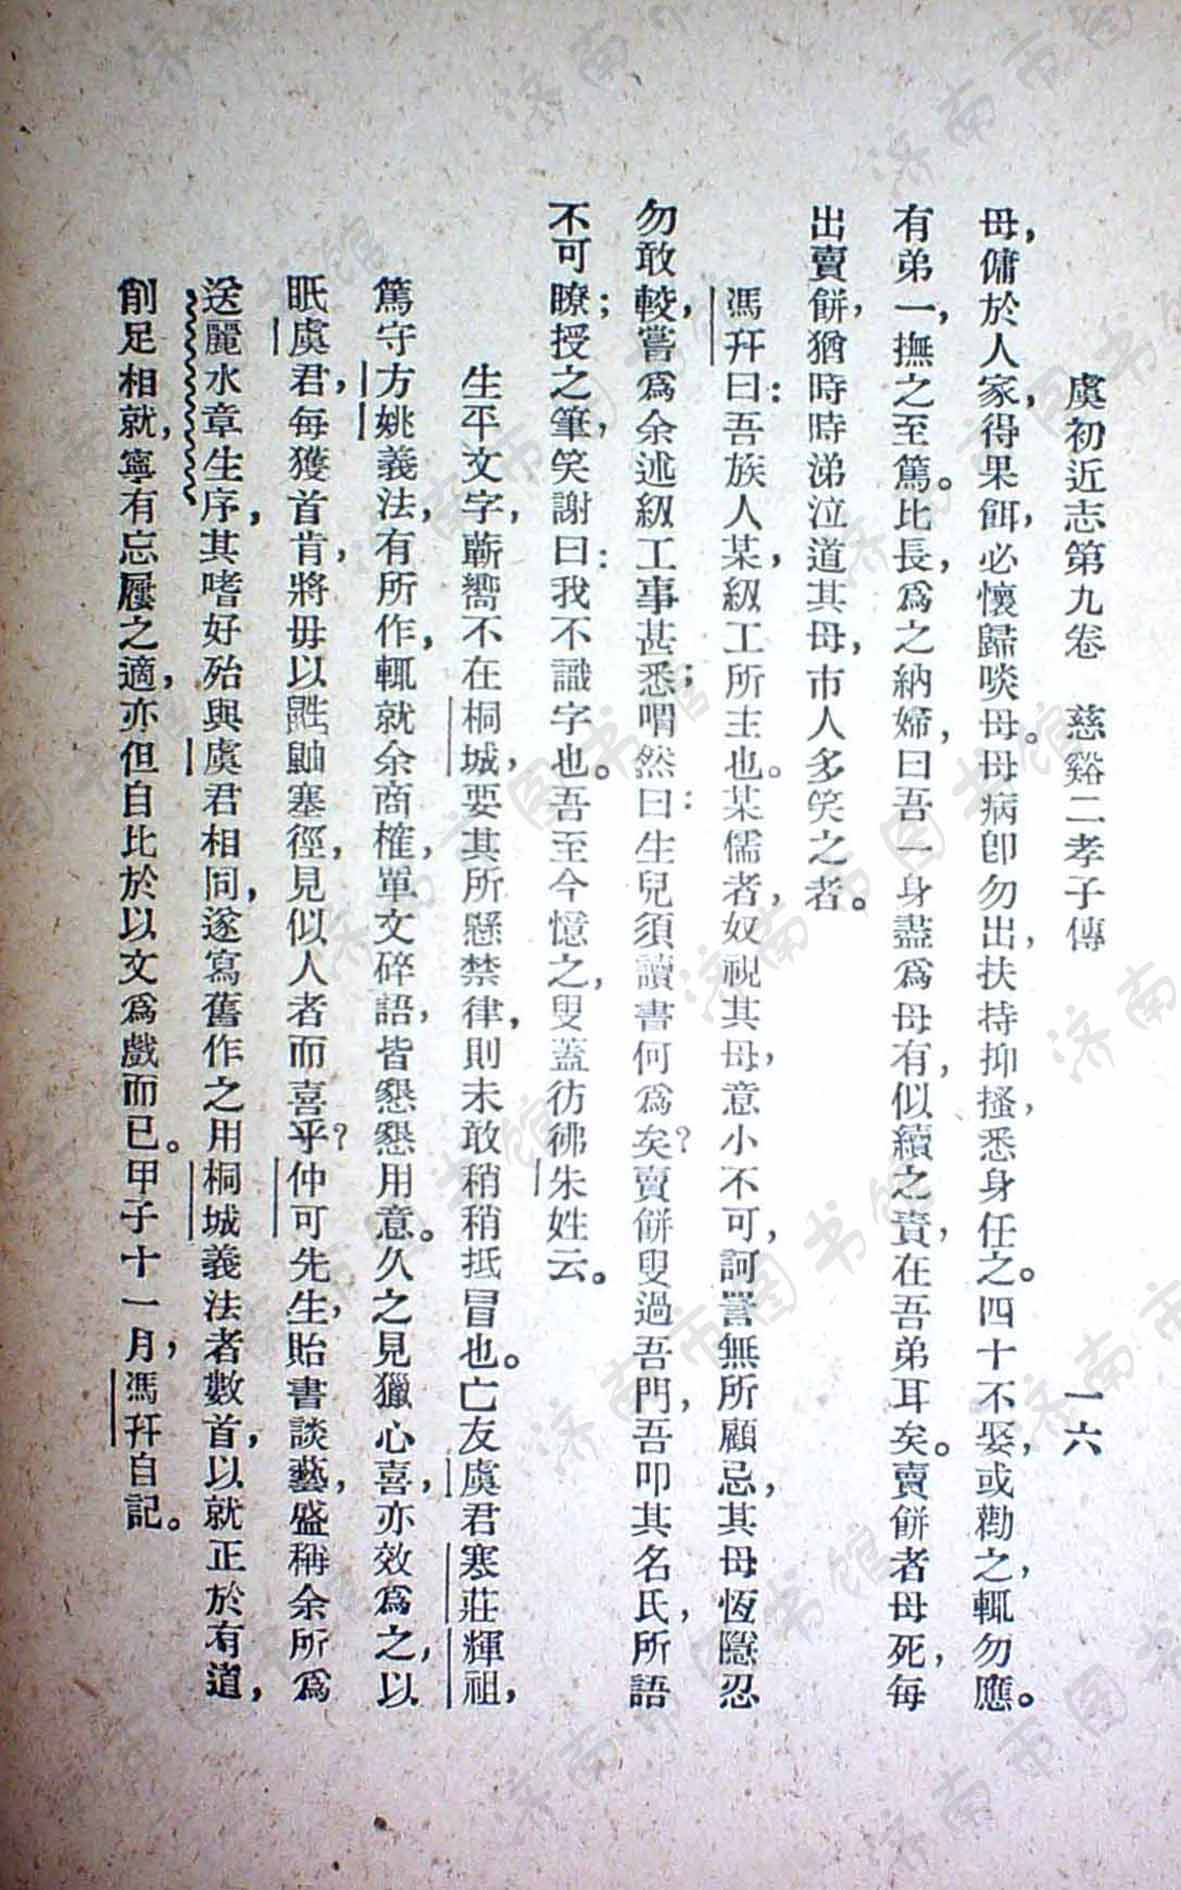 虞初近志第九卷　慈谿二孝子傳　一六
母，傭於人家，得果餌，必懷歸啖母。母病即勿出，扶持抑搔，悉身任之。四十不娶，或勸之，輒勿應。
有弟一，撫之至篤。比長，爲之納婦，曰吾一身盡爲母有，似續之責，在吾弟耳矣。賣餅者母死，每
出賣餅，猶時時涕泣道其母，市人多笑之者。
馮幵曰：吾族人某，級工所主也。某儒者，奴視其母，意小不可，訶詈無所顧忌，其母恆隱忍
勿敢較，嘗爲余述級工事甚悉；喟然曰：生兒須讀書何爲矣？賣餅叟過吾門，吾叩其名氏，所語
不可瞭；授之筆，笑謝曰：我不識字也。吾至今憶之，叟蓋彷彿朱姓云。
生平文字，蘄嚮不在桐城，要其所懸禁律，則未敢稍稍抵冒也。亡友虞君寒莊輝祖，
篤守方姚義法，有所作，輒就余商榷，單文碎語，皆懇懇用意。久之見獵心喜，亦效爲之，以
眡虞君，每獲首肯，將毋以鼪鼬塞徑，見似人者而喜乎？仲可先生，貽書談藝，盛稱余所爲
送麗水章生序，其嗜好殆與虞君相同，遂寫舊作之用桐城義法者數首，以就正於有道，
削足相就，寧有忘屨之適，亦但自比於以文爲戲而已。甲子十一月，馮幵自記。
济南市图书馆